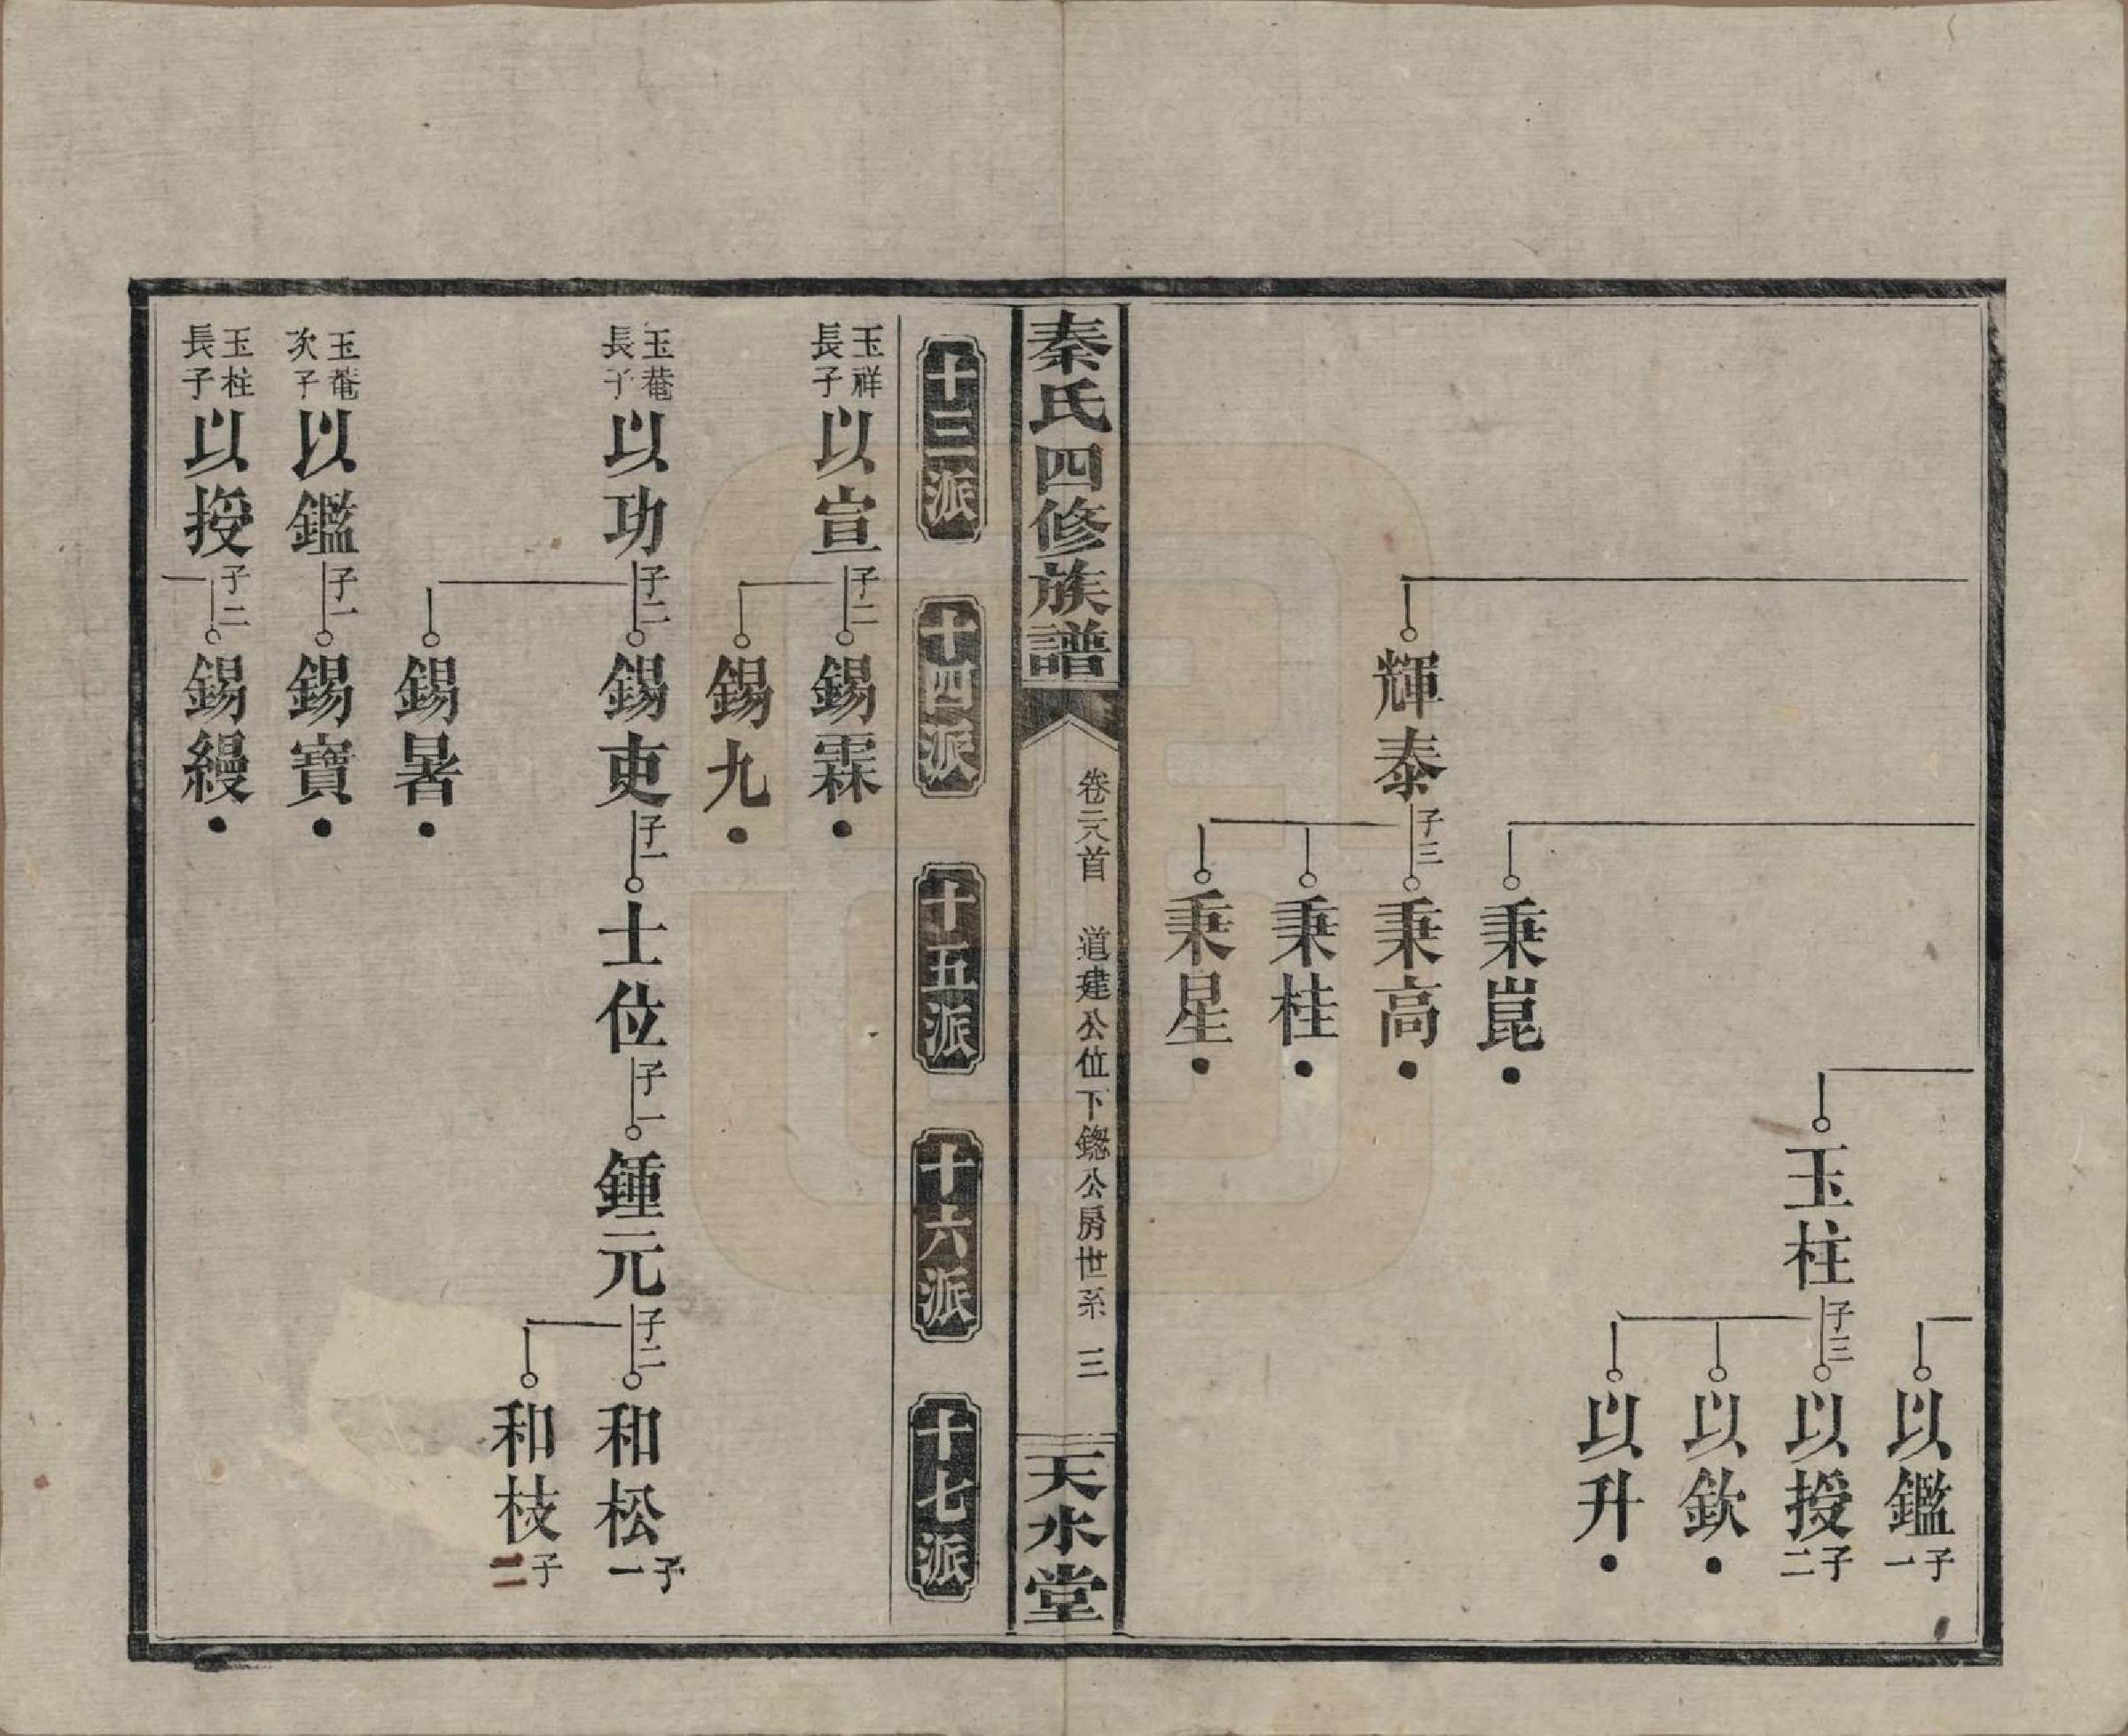 以鑑 子一
玉柱 子三 以授 子二
以欽
以升
秉崑
輝泰 子三 秉高
秉桂
秉星
秦氏四修族譜
卷三八首 道建公位下鏓公房世系 三
天水堂
十三派 十四派 十五派 十六派 十七派
玉祥長子 以宣 子二 錫霖
錫九
玉菴長子 以功 子二 錫吏 子一 士位 子一 鍾元 子二 和松 子一
和枝 子二
錫暑
玉菴次子 以鑑 子一 錫寶
玉柱長子 以授 子二 錫縵